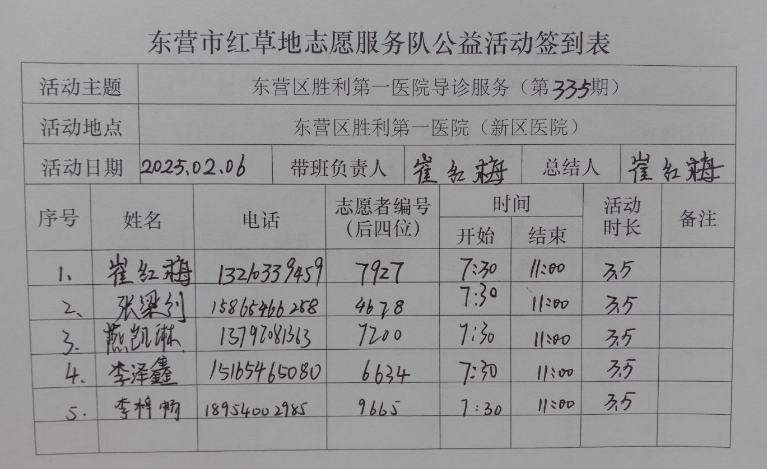 东营市红草地志愿服务队公益活动签到表
活动主题 东营区胜利第一医院导诊服务（第335期）
活动地点 东营区胜利第一医院（新区医院）
活动日期 2025.02.06 带班负责人 崔红梅 总结人 崔红梅
序号 姓名 电话 志愿者编号（后四位） 时间 开始 结束 活动时长 备注
1、 崔红梅 13210339459 7927 7:30 11:00 3.5
2、 张梁钊 15865466258 4678 7:30 11:00 3.5
3、 燕凯琳 7200 7:30 11:00 3.5
4、 李泽鑫 15165465080 6634 7:30 11:00 3.5
5、 李梓畅 18954002985 9665 7:30 11:00 3.5